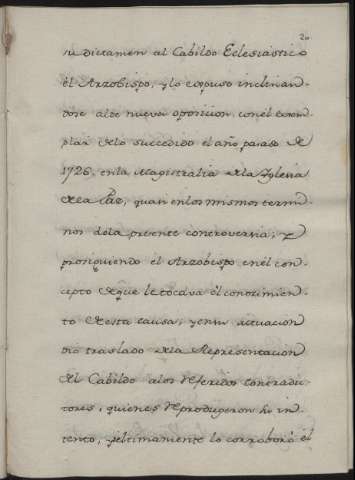 20
su dictamen al Cabildo Eclesiástico
èl Arzobispo, y lo expuso inclinan-
dose àl de nueva oposicion, con el exem-
plar de lo succedido el año pasado de
1726, en la Magistralia de la Yglesia
de la Paz, quasi en los mismos termi-
nos de la presente controversia; y
prosiguiendo èl Arzobispo en el con-
cepto de que le tocava èl conocimien-
to de esta causa, y en su actuacion
dio traslado de la Representacion
del Cabildo a los referidos contradic-
tores, quienes reprodugeron su in-
tento, y ultimamente lo corroborò èl